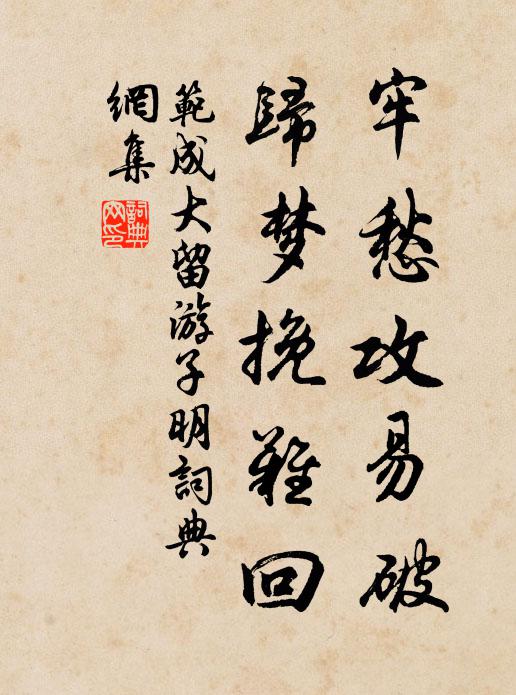 牢愁攻易破
歸梦挽難回
範成大留游子明詞典
網集
詞典
网印